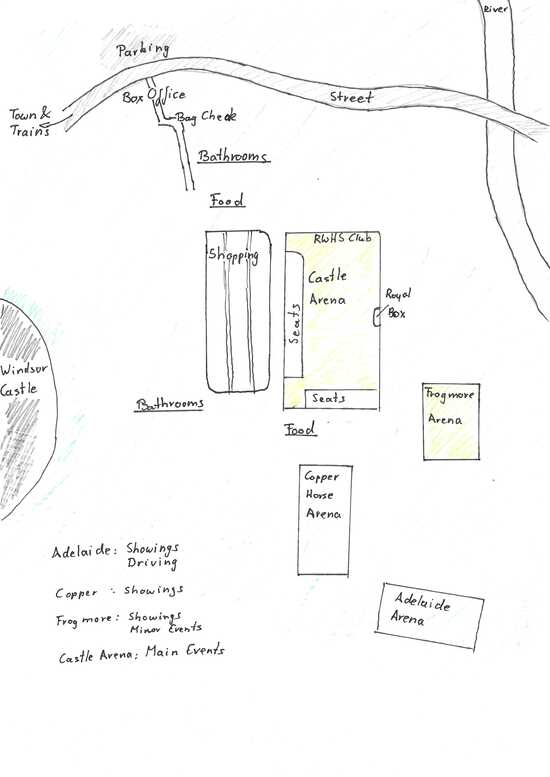 River
Parking
Box Office
Street
Town &
Trains
Bag Check
Bathrooms
Food
RWHS Club
Shopping
Castle
Arena
Seats
Royal
Box
Windsor
Castle
Seats
Frogmore
Arena
Bathrooms
Food
Copper
Horse
Arena
Adelaide
Arena
Adelaide: Showings
Driving
Copper : Showings
Frogmore: Showings
Minor Events
Castle Arena: Main Events